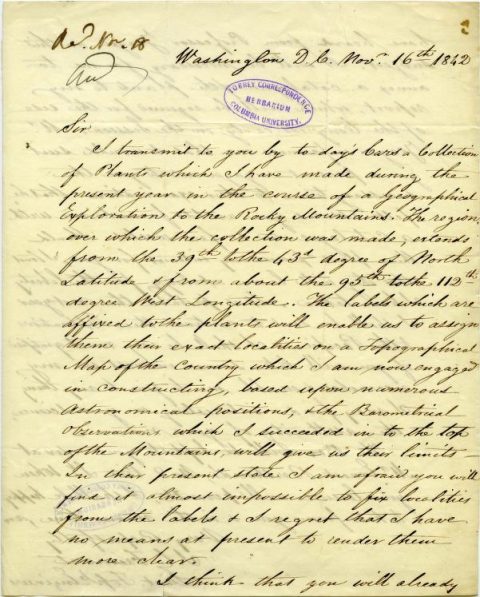 Rec.d Nov. 18
Ansd
Washington D.C. Nov.r 16th 1842
TORREY CORRESPONDENCE
HERBARIUM
COLUMBIA UNIVERSITY.
Sir
I transmit to you by to day's Cars a Collection
of Plants which I have made during the
present year in the course of a Geographical
Exploration to the Rocky Mountains. The region,
over which the collection was made, extends
from the 39th to the 43d degree of North
Latitude & from about the 95th to the 112th
degree West Longitude. The labels which are
affixed to the plants will enable us to assign
them their exact localities on a Topographical
Map of the Country which I am now engaged
in constructing, based upon numerous
Astronomical positions, & the Barometrical
Observations which I succeeded in to the top
of the Mountains, will give us their limits
In their present state I am afraid you will
find it almost impossible to fix localities
from the labels & I regret that I have
no means at present to render them
more clear.
I think that you will already